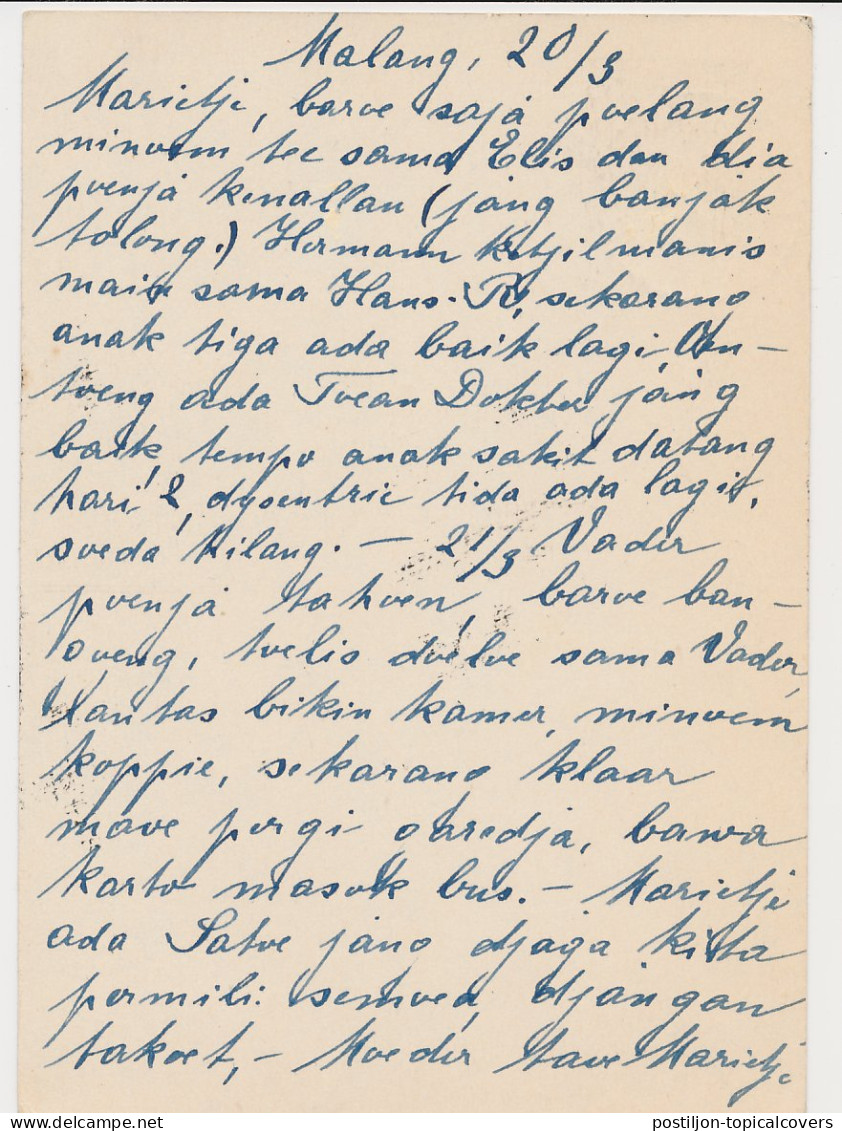 Malang, 20/3
Marietje, baroe saja poelang
minoem tee sama Elis dan dia
poenja kenallan (jang banjak
tolong.) Hermann ketjil manis
main sama Hans. sekarang
anak tiga ada baik lagi, On-
toeng ada Toean Dokter jang
baik, tempo anak sakit datang
hari 2, dysentrie tida ada lagi,
soeda hilang. — 21/3 Vader
poenja tahoen, baroe ban-
goeng, toelis doeloe sama Vader,
lantas bikin kamer, minoem
koppie, sekarang klaar
maoe pergi garedja, bawa
karto masok bus. — Marietje
ada Satoe jang djaga kita
permili semoea, djangan
takoet, — Moeder taoe Marietje
postiljon-topicalcovers